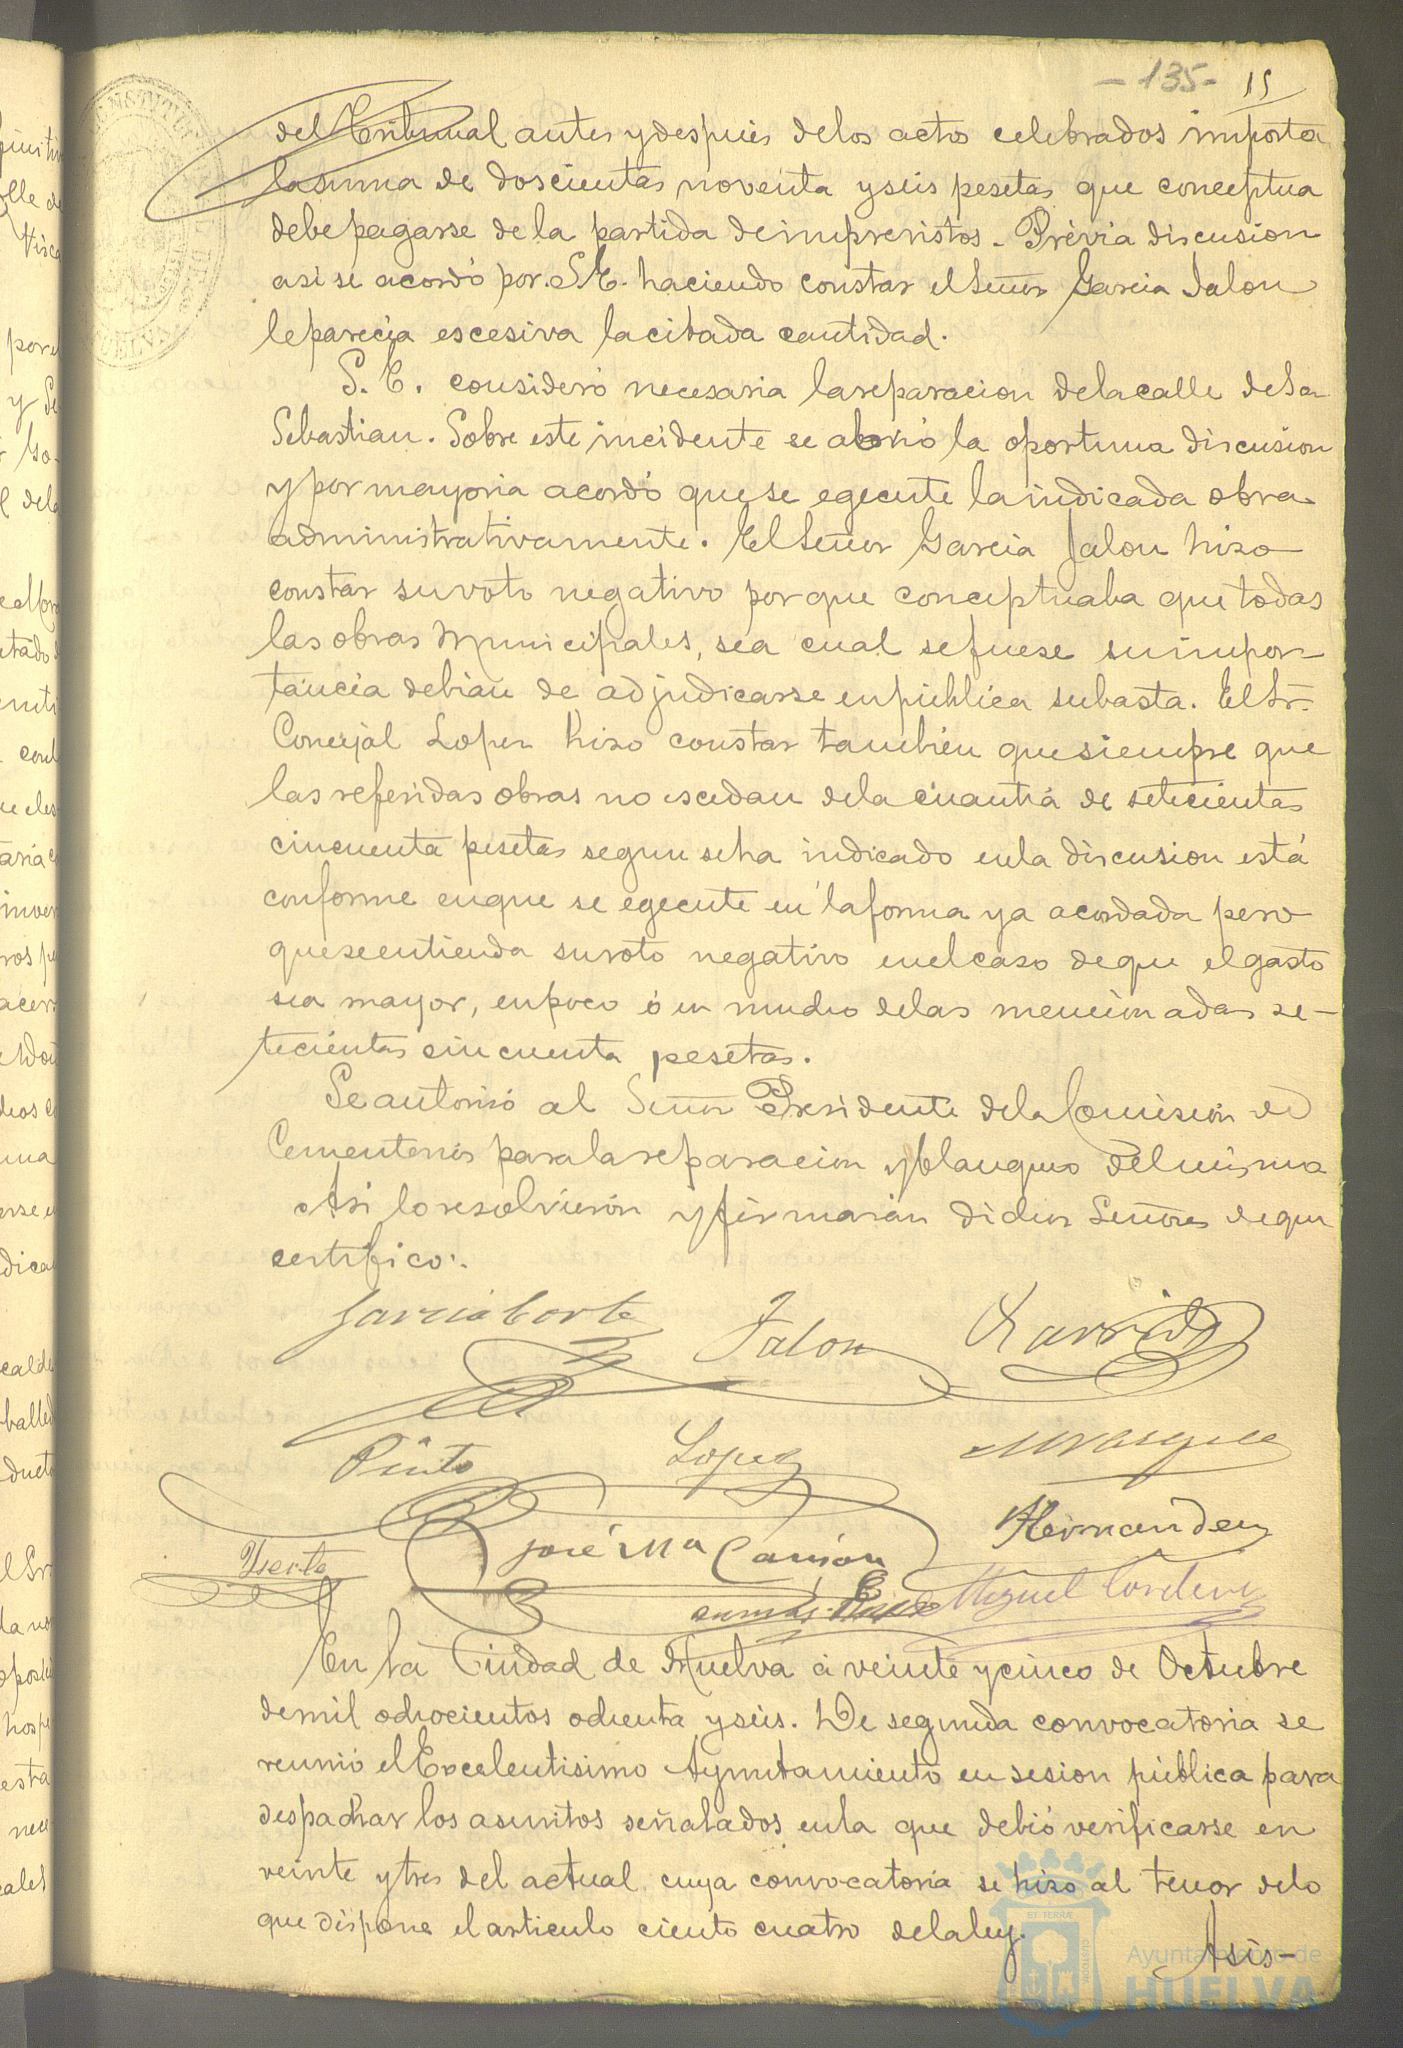 - 135 - 15
del Tribunal antes y despues de los actos celebrados importa
la suma de doscientas noventa y seis pesetas que conceptua
debe pagarse de la partida de imprevistos. Previa discusion
asi se acordó por S. E. haciendo constar el Señor Garcia Jalon
le parecia escesiva la citada cantidad.
S. E. consideró necesaria la reparacion de la calle de Sn
Sebastian. Sobre este incidente se abrió la oportuna discusion
y por mayoria acordó que se egecute la indicada obra
administrativamente. El Señor Garcia Jalon hizo
constar su voto negativo por que conceptuaba que todas
las obras Municipales, sea cual se fuese su impor-
tancia debian de adjudicarse en pública subasta. El Sr.
Concejal Lopez hizo constar tambien que siempre que
las referidas obras no escedan de la cuantia de setecientas
cincuenta pesetas segun se ha indicado en la discusion está
conforme en que se egecute en la forma ya acordada pero
que se entienda su voto negativo en el caso de que el gasto
sea mayor, en poco ó en mucho de las mencionadas se-
tecientas cincuenta pesetas.
Se autorizó al Señor Presidente de la Comision de
Cementerios para la reparacion y blanqueo del mismo
Asi lo resolvieron y firmarán dichos Señores de que
certifico.
Garcia Corte Jalon Garrido
Pinto Lopez M Vazquez
José Ma Carrion Hernandez
Miguel Cordero
En la Ciudad de Huelva á veinte y cinco de Octubre
de mil ochocientos ochenta y seis. De segunda convocatoria se
reunió el Excelentisimo Ayuntamiento en sesion pública para
despachar los asuntos señalados en la que debió verificarse en
veinte y tres del actual cuya convocatoria se hizo al tenor de lo
que dispone el articulo ciento cuatro de la ley.
Asis-
Ayuntamiento de
HUELVA